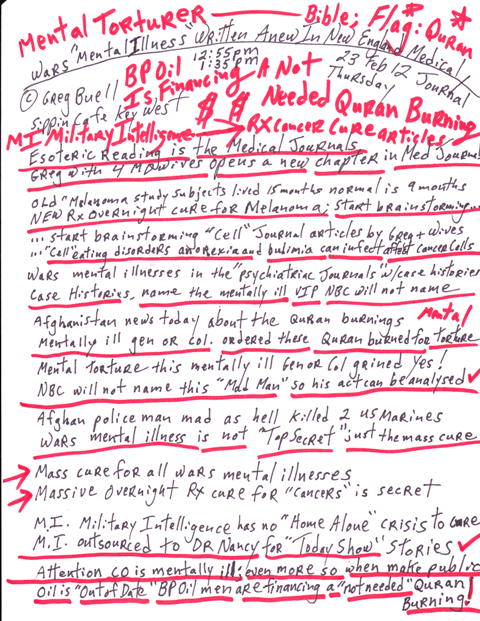 Mental Torturer — Bible; Flag: Quran
Wars "Mental Illness" Written Anew In New England Medical
12:55pm
1:35pm
23 Feb 12 Journal
Thursday
© Greg Buell
Sippin Cafe Key West
BP Oil
Is Financing A Not
$ $ Needed Quran Burning
MI Military Intelligence → RX Cancer Cure articles
Esoteric Reading is the Medical Journals
Greg with 4 MD wives opens a new chapter in Med Journals
Old "Melanoma study subjects lived 15 months normal is 9 months
New Rx overnight cure for Melanoma; start brainstorming...
... start brainstorming "Cell" Journal articles by Greg + Wives
... "Cell" eating disorders anorexia and bulimia can infect affect cancer cells
Wars mental illnesses in the "psychiatric Journals w/case histories
Case Histories, name the mentally ill VIP NBC will not name
Afghanistan news today about the Quran burnings
Mental
Mentally ill gen or col. ordered these Quran burned for torture
Mental Torture this mentally ill Gen or Col grined Yes!
NBC will not name this "Mad Man" so his act can be analysed
Afghan police man mad as hell killed 2 US Marines
Wars mental illness is not "Top Secret" just the mass cure
→ Mass cure for all wars mental illnesses
→ Massive Overnight Rx cure for "cancers" is secret
M.I. Military Intelligence has no "Home Alone" crisis to cure
M.I. outsourced to DR Nancy for "Today Show" stories
Attention CO is mentally ill; even more so when make public
Oil is "Out of Date" BP Oil men are financing a "not needed" Quran
Burning!